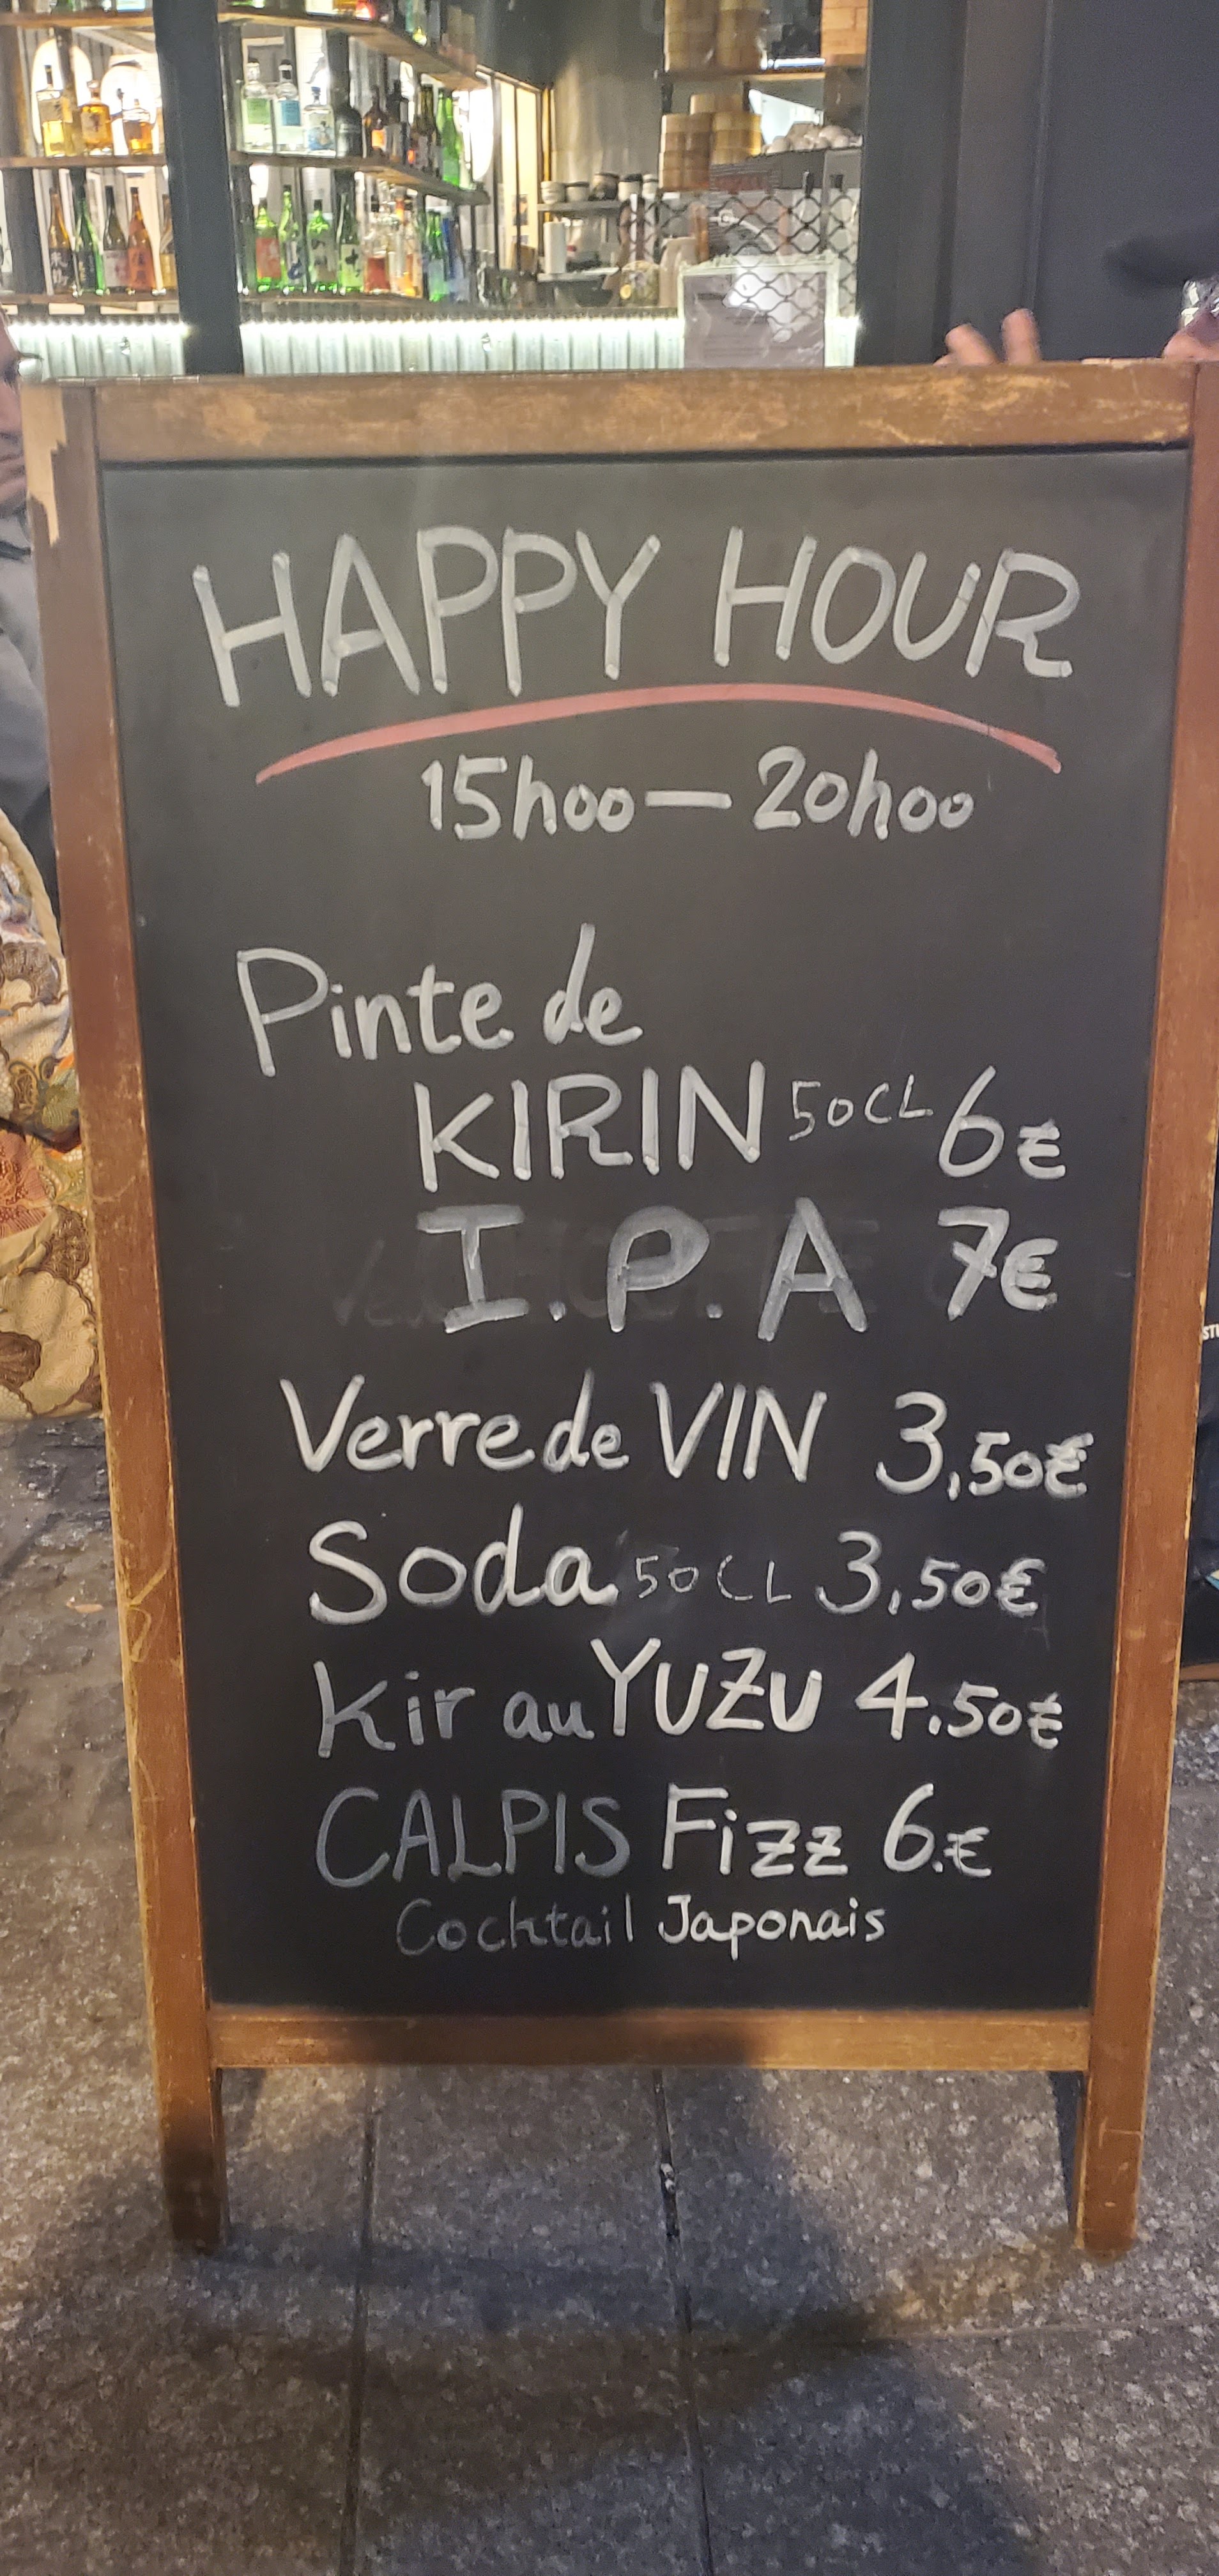 HAPPY HOUR
15h00 — 20h00
Pinte de
KIRIN 50CL 6€
I.P.A 7€
Verre de VIN 3,50€
Soda 50CL 3,50€
Kir au YUZU 4.50€
CALPIS Fizz 6.€
Cocktail Japonais